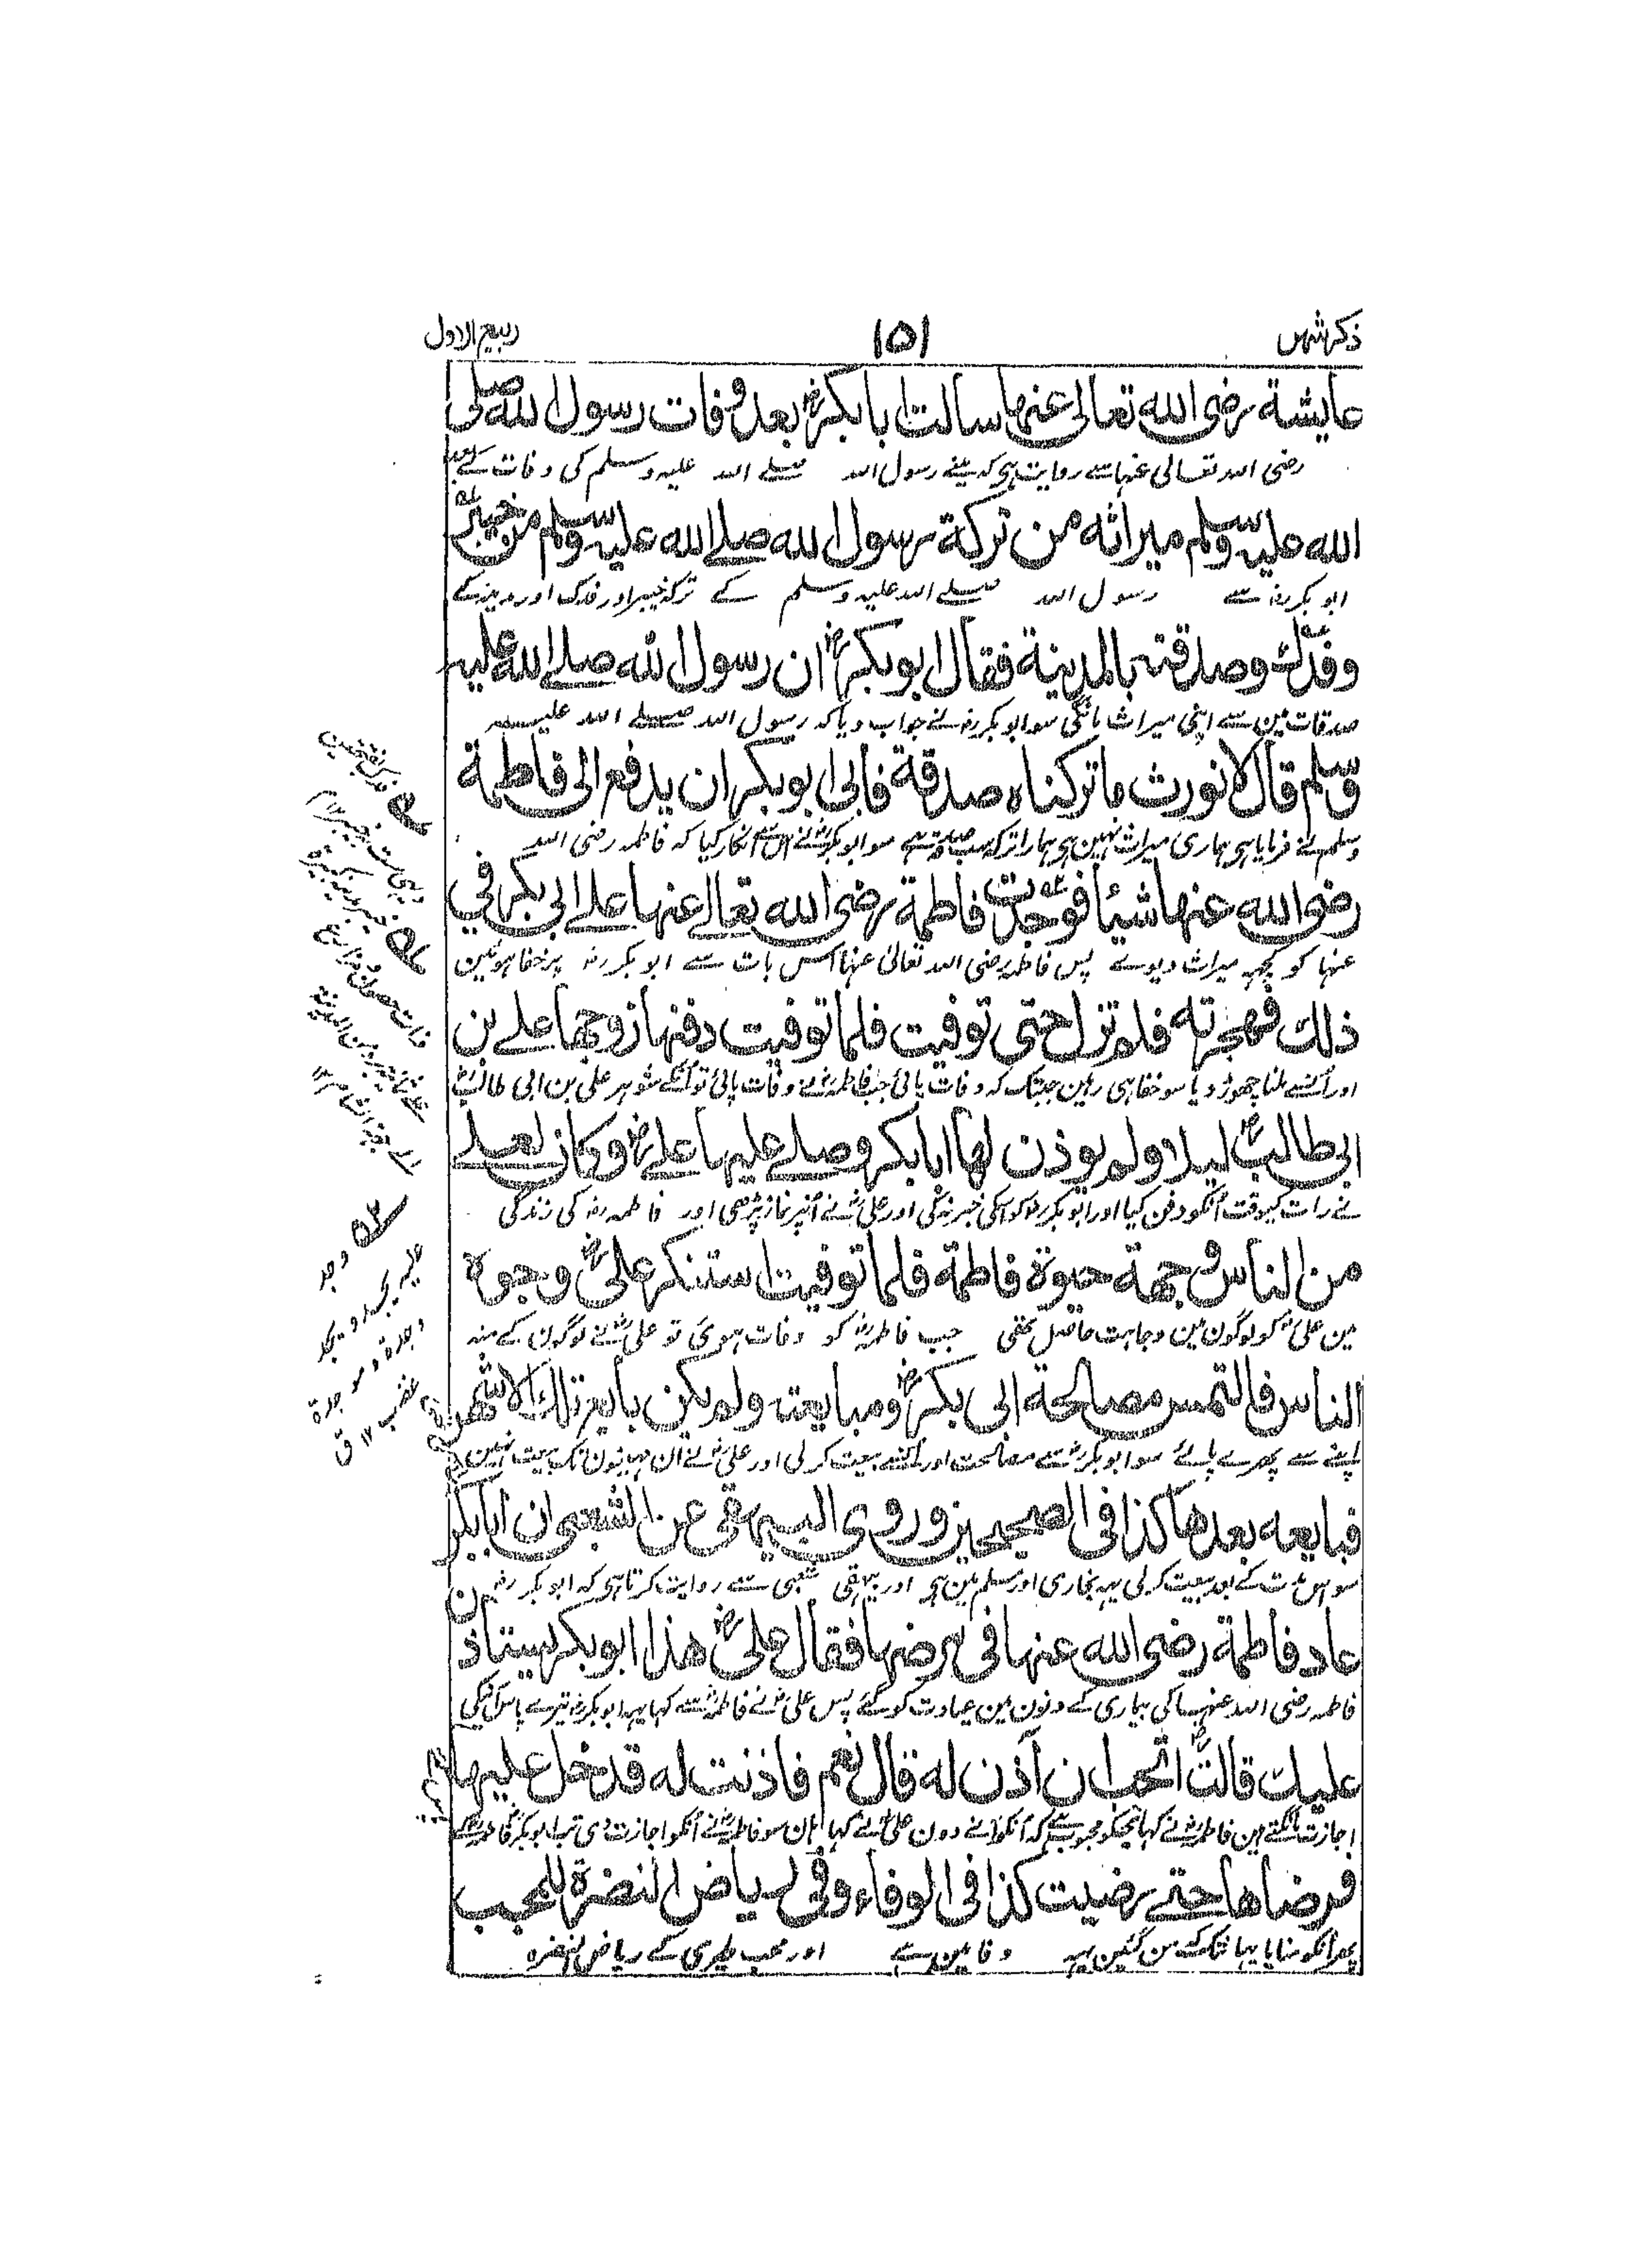 ذكر شهر ١٥١ ربيع الاول
عايشة رضى الله تعالى عنها سالت ابا بكر رض بعد وفات رسول الله صلى
رضی اللہ تعالی عنہا سے روایت ہی کہ رسول اللہ صلے اللہ علیہ وسلم کی وفات کے بعد
الله عليه وسلم ميراثه من تركة رسول الله صلے الله عليه وسلم من خيبر
ابو بکر رضہ سے رسول اللہ صلے اللہ علیہ وسلم کے ترکہ خیبر اور فدک اور مدینہ کے
وفدك وصدقته بالمدينة فقال ابو بكر رض ان رسول الله صلے الله عليه
صدقات مین سے اپنی میراث مانگی سو ابو بکر رضہ نے جواب دیا کہ رسول اللہ صلے اللہ علیہ
وسلم قال لا نورث ما تركناه صدقة فابى ابو بكر ان يدفع الى فاطمة
وسلم نے فرمایا ہی ہماری میراث نہین ہی ہمارا ترکہ سب صدقہ ہے سو ابو بکر رض نے انکار کیا کہ فاطمہ رضی اللہ
رضى الله عنها شيئا فوجدت فاطمة رضى الله تعالے عنها علے ابى بكر في
عنہا کو کچہہ میراث دیوے پس فاطمہ رضی اللہ تعالی عنہا اس بات سے ابو بکر رضہ پر خفا ہوئین
ذلك فهجرته فلم تزل حتى توفيت فلما توفيت دفنها زوجها علے بن
اور اُنسے ملنا چھوڑ دیا سو خفا ہی رہین جبتک کہ وفات پائی جب فاطمہ رض نے وفات پائی تو اُنکے شوہر علی بن ابی طالب رض
ابى طالب رض ليلا ولم يوذن لها ابا بكر وصلے عليها علے رض وكان لعلے
نے رات کیوقت اُنکو دفن کیا اور ابو بکر رضہ کو اسکی خبر نکی اور علی رض نے اُنپر نماز پڑھی اور فاطمہ رضہ کی زندگی
من الناس وجهة حيوة فاطمة فلما توفيت استنكر على رض وجوه
مین علی رض کو لوگون مین وجاہت حاصل تھی جب فاطمہ رضہ کو وفات ہوئی تو علی رض نے لوگون کے منہ
الناس فالتمس مصالحة ابى بكر رض ومبايعته ولم يكن بايع تلك الاشهر
اپنے سے پھرے پائے سو ابو بکر رض سے مصالحت اور اُنسے بیعت کر لی اور علی رض نے ان مہینون تک بیعت نہین
فبايعه بعدها كذا فى الصحيحين وروى البيهقى عن الشعبى ان ابا بكر
سو اس مدت کے بعد بیعت کر لی یہہ بخاری اور مسلم مین ہی اور بیہقی شعبی سے روایت کرتا ہی کہ ابو بکر رضہ
عاد فاطمة رضى الله عنها فى مرضها فقال على رض هذا ابو بكر يستاذن
فاطمہ رضی اللہ عنہا کی بیماری کے دنون مین عیادت کو گئے پس علی رض نے فاطمہ رض سے کہا یہہ ابو بکر رضہ تیرے پاس آنیکی
عليك قالت رض اتحب ان آذن له قال نعم فاذنت له فدخل عليها
اجازت مانگتے ہین فاطمہ رض نے کہا تجھکو محبوب ہے کہ اُنکو اذن دون علی رض نے کہا ہان سو فاطمہ رض نے اُنکو اجازت دی تب ابو بکر رض فاطمہ رض کے
فرضاها حتے رضيت كذا فى الوفاء وفى رياض النضرة للمحب
پھر اُنکو منایا یہانتک کہ من گئین یہہ وفا مین ہے اور محب طبری کے ریاض النضرہ
وجد
عليه يجد ويجد
وجدة وموجدة
غضب ١٢ ق